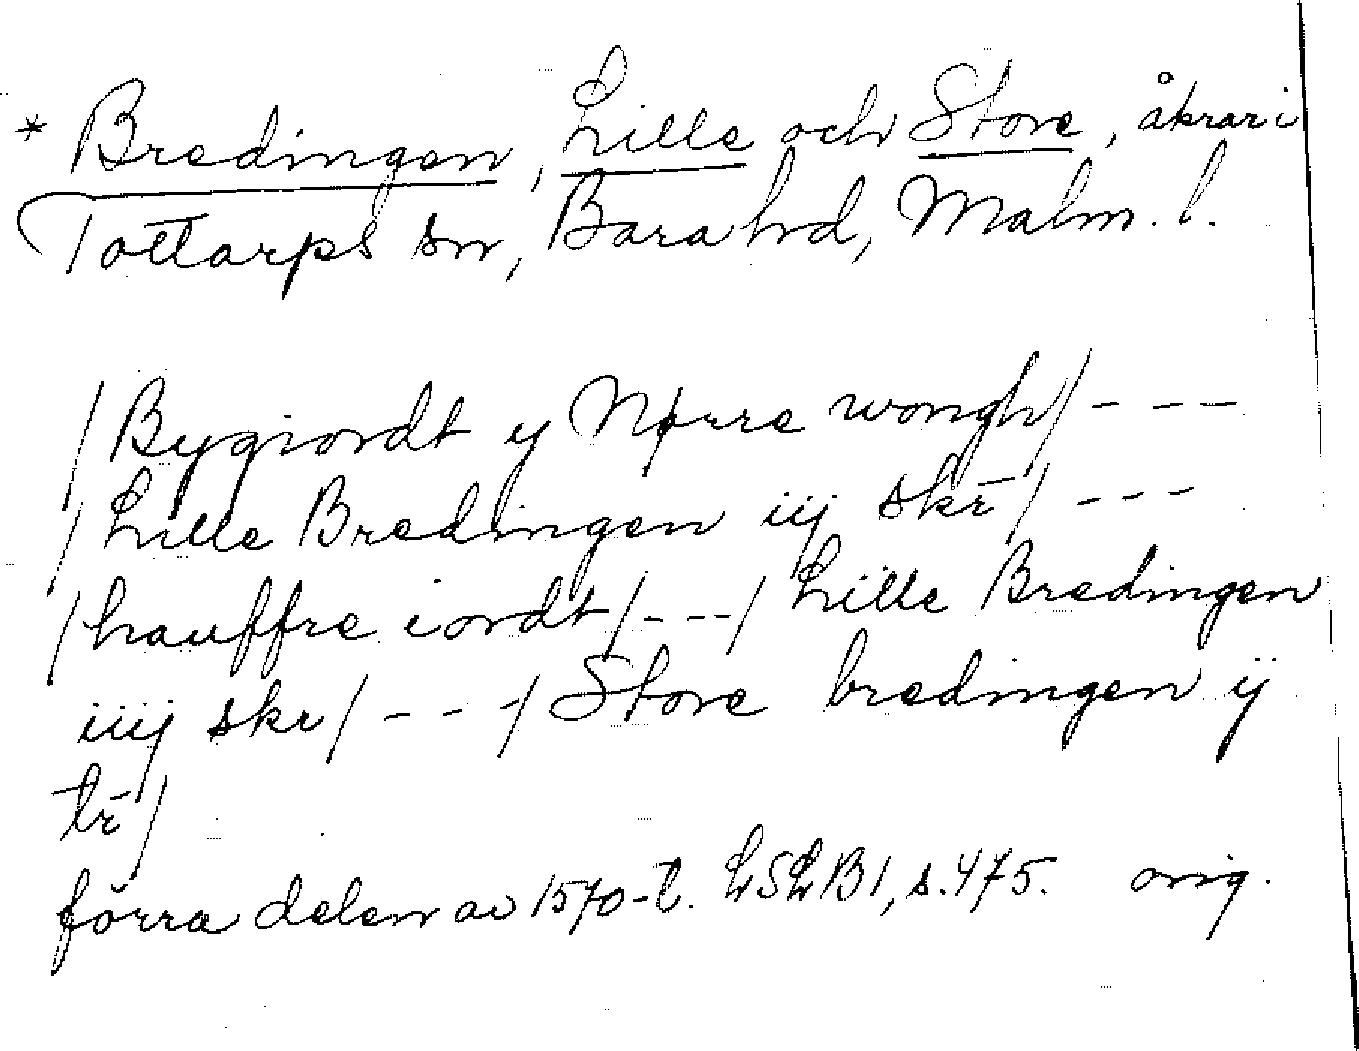 * Bredingen, Lille och Store, åkrar i
Tottarps sn, Bara hd, Malm. l.
/Bygiordt ij Nørre wongh/ - - -
/Lille Bredingen iij skr̄/ - - -
/hauffre iordt/ - - - / Lille Bredingen
iiij skr/ - - - / Store bredingen ij
tr̄/
förra delen av 1570-t. LSLB1, s. 475. orig.